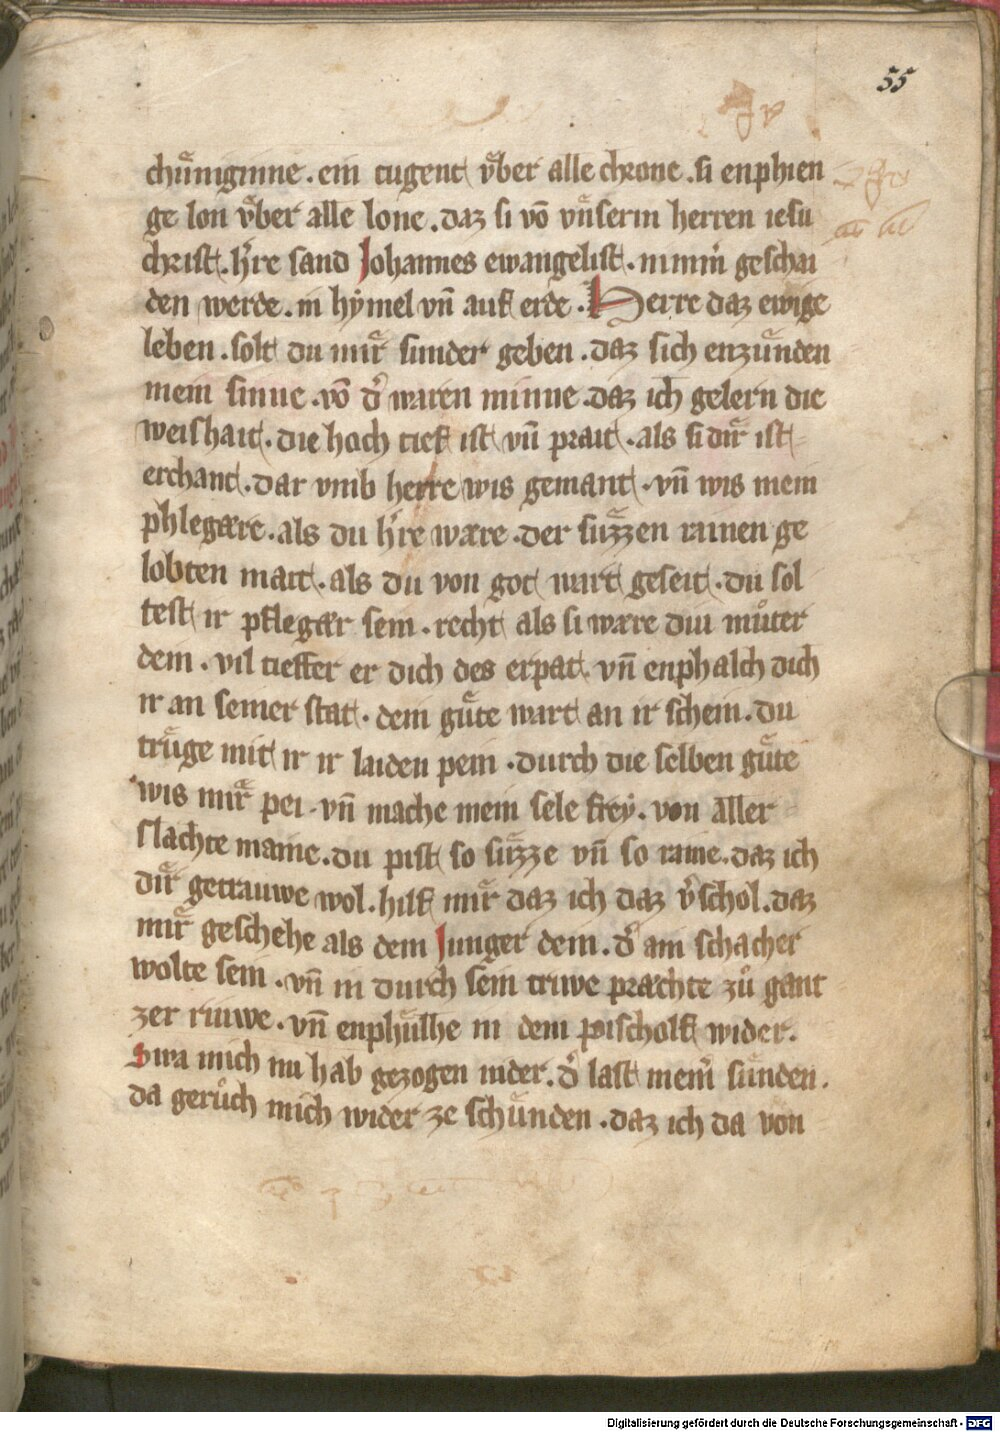 55
chuͤniginne . ein tugent vͤber alle chrone . si enphien
ge lon vͤber alle lone . daz si vō vnͤserm herren iesu
christ . h're sand Johannes ewangelist . nimm' geschai
den werde . in hẏmel vn̄ auf erde . Herre daz ewige
leben . solt du mirͤ sunder geben . daz sich enzuͤnden
mein sinne . vō d' waren minne . daz ich gelern die
weishait . die hoch tief ist vn̄ prait . als si dirͤ ist
erchant . dar vmb herre wis gemant . vn̄ wis mein
phlegære . als du h're wære . der suͤzzen rainen ge
lobten mait . als du von got wart geseit . du sol
test ir pflegær sein . recht als si wære diu muͦter
dein . vil tieffer er dich des erpat . vn̄ enphalch dich
ir an seiner stat . dein guͤte wart an ir schein . du
truͤge mit ir ir laiden pein . durch die selben guͤte
wis mirͤ pei . vn̄ mache mein sele freẏ . von aller
slachte maine . du pist so suͤzze vn̄ so raine . daz ich
dirͤ getrauwe wol . hilf mirͤ daz ich daz v'schol . daz
mirͤ geschehe als dem Junger dein . d' ain schacher
wolte sein . vn̄ in durch sein triwe præchte zuͦ gant
zer riuwe . vn̄ enphuͤlhe in dem pischolf wider .
Swa mich nu hab gezogen nider . d' last mein' suͤnden .
da geruͦch mich wider ze schuͤnden . daz ich da von
Digitalisierung gefördert durch die Deutsche Forschungsgemeinschaft - DFG